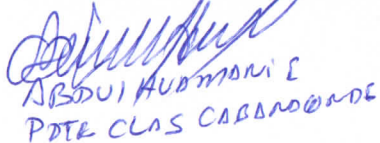 ABDUI HUAMANI E
PDTE CLAS CABANACONDE